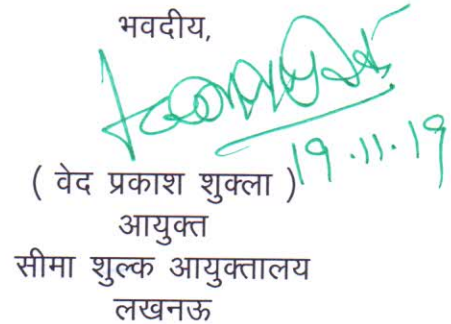 भवदीय,
19.11.19
( वेद प्रकाश शुक्ला )
आयुक्त
सीमा शुल्क आयुक्तालय
लखनऊ